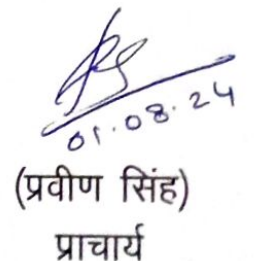 01.08.24
(प्रवीण सिंह)
प्राचार्य